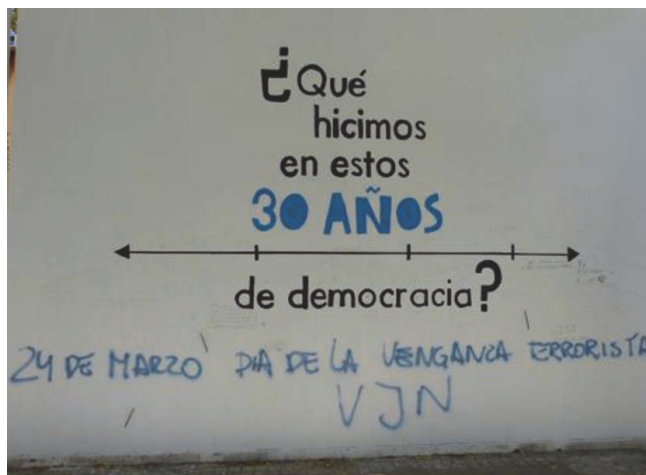 ¿Qué
hicimos
en estos
30 AÑOS
de democracia?
24 DE MARZO DIA DE LA VENGANZA ERRORISTA
VJN